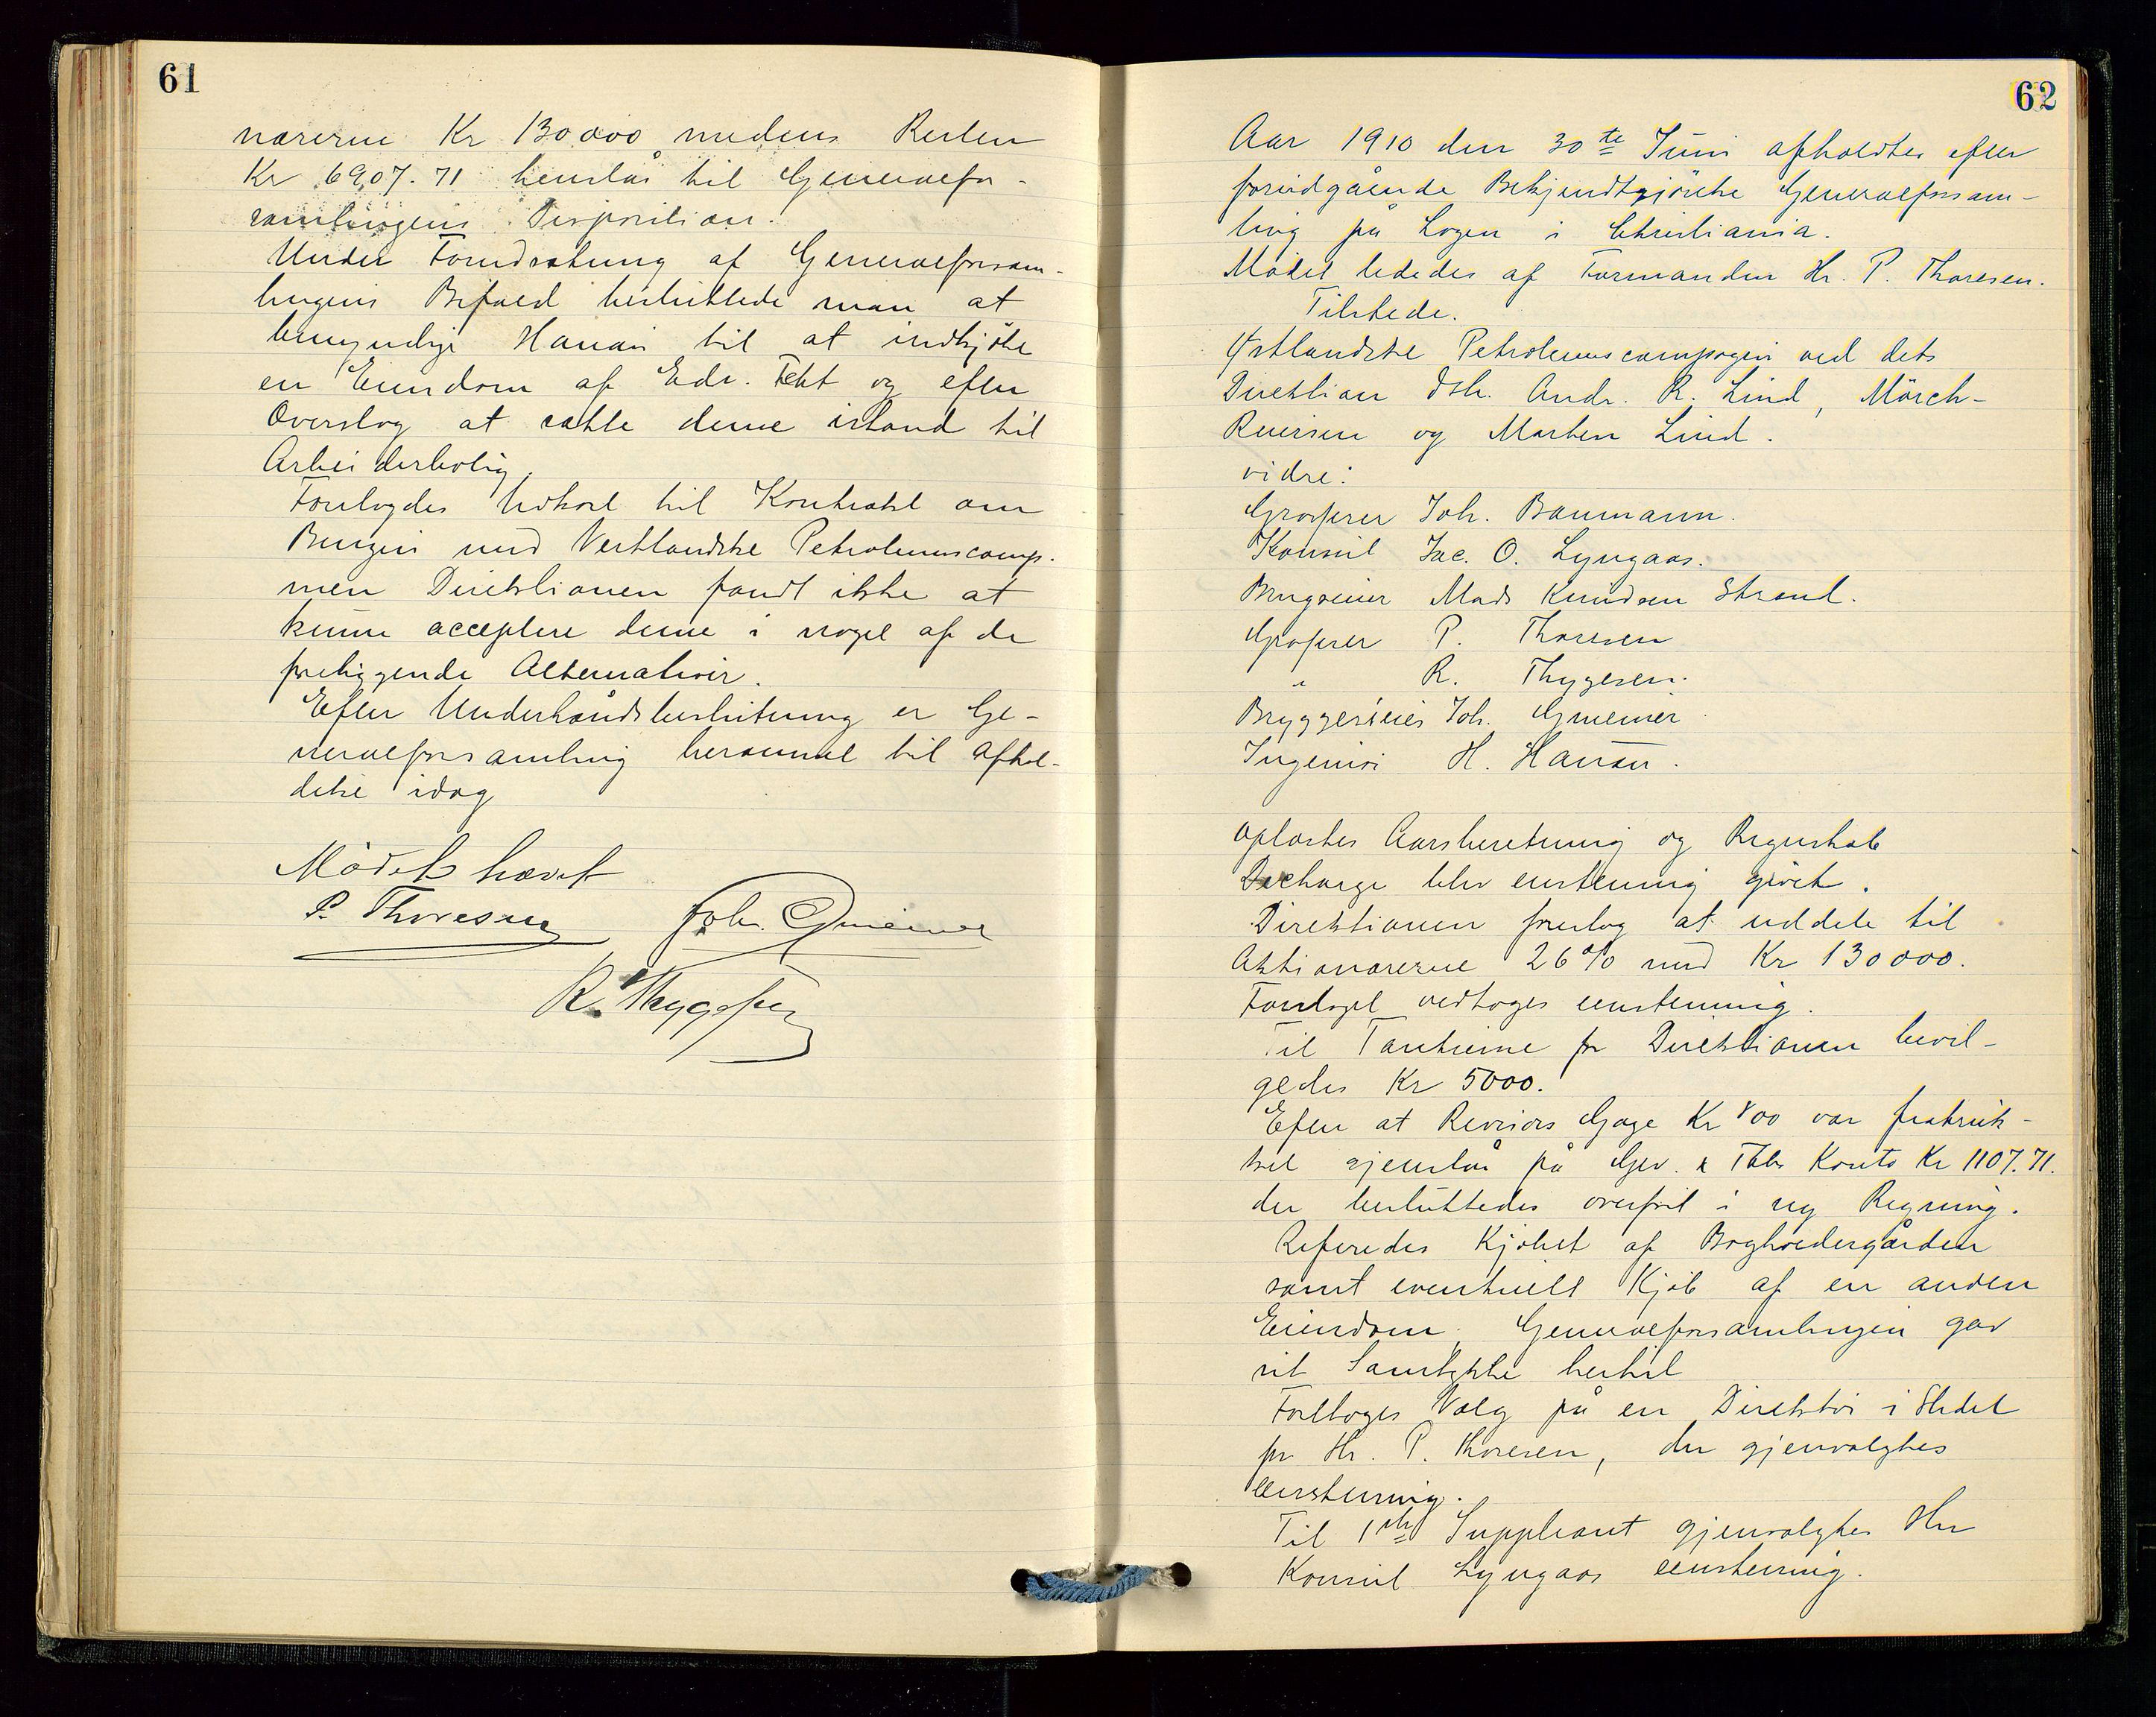 61
nærerne Kr 130000 medens Resten
Kr 6907.71 henstår til Generalfor-
samlingens Disposition.
Under Forudsætning af Generalforsam-
lingens Bifald besluttede man at
bemyndige Hansen til at indkjøbe
en Eiendom af Edv. og efter
Overslag at sætte denne istand til
Arbeiderbolig.
Forelagdes Udkast til Kontrakt om
Benzin med Vestlandske Petroleumscomp.
men Direktionen fandt ikke at
kunne acceptere denne i noget af de
foreliggende Alternativer.
Efter Underhåndsbeslutning er Ge-
neralforsamling berammet til Afhol-
delse idag
Mödet hævet
P. Thoresen Joh. Gmeiner
R. Thygesen
62
Aar 1910 den 30te Juni afholdtes efter
forudgående Bekjendtgjörelse Generalforsam-
ling på Logen i Christiania.
Mödet lededes af Formanden Hr. P. Thoresen.
Tilstede.
Östlandske Petroleumscompagni ved dets
Direktion d'Hr. Andr. R. Lind, Mörch-
Reiersen og Morten Lind.
vidre:
Grosserer Joh. Baumann.
Konsul Jac. O. Lyngaas.
Brugseier Mads Knudsen Strand.
Grosserer P. Thoresen
" R. Thygesen.
Bryggerieier Joh. Gmeiner
Ingeniör H. Hansen.
Oplæstes Aarsberetning og Regnskab
Decharge blev enstemmig givet.
Direktionen foreslog at uddele til
Aktionærerne 26% med Kr 130000.
Forslaget vedtoges eenstemmig.
Til Tantieme for Direktionen bevil-
gedes Kr 5000.
Efter at Revisors Gage Kr 800 var fratruk-
ket gjenstår på Gev. & Tabs Konto Kr 1107.71.
der besluttedes overfört i ny Regning.
Refereredes Kjöbet af Bogholdergården
samt eventuelt Kjöb af en anden
Eiendom. Generalforsamlingen gav
sit Samtykke hertil
Foretoges Valg på en Direktör i Stedet
for Hr. P. Thoresen, der gjenvalgtes
eenstemmig.
Til 1ste Suppleant gjenvalgtes Hr
Konsul Lyngaas eenstemmig.